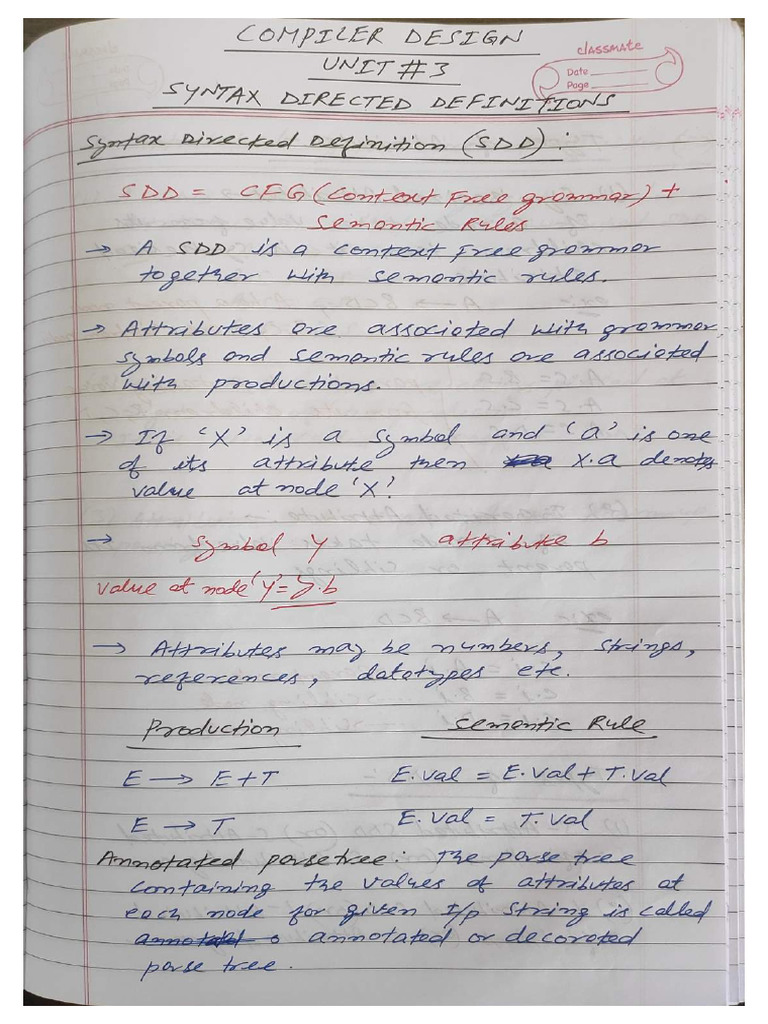 COMPILER DESIGN
classmate
UNIT # 3
Date
Page
SYNTAX DIRECTED DEFINITIONS
Syntax Directed Definition (SDD) :
SDD = CFG (Context Free grammar) +
Semantic Rules
→ A SDD is a context free grammer
together with semantic rules.
→ Attributes are associated with grammar
symbols and semantic rules are associated
with productions.
→ If 'X' is a symbol and 'a' is one
of its attribute then X.a denotes
value at node 'X'.
→ symbol Y attribute b
value at node 'Y' = Y.b
→ Attributes may be numbers, strings,
references, datatypes etc.
Production Semantic Rule
E → E+T E.val = E.val + T.val
E → T E.val = T.val
Annotated parse tree : The parse tree
containing the values of attributes at
each node for given I/p string is called
annotated or decorated
parse tree.